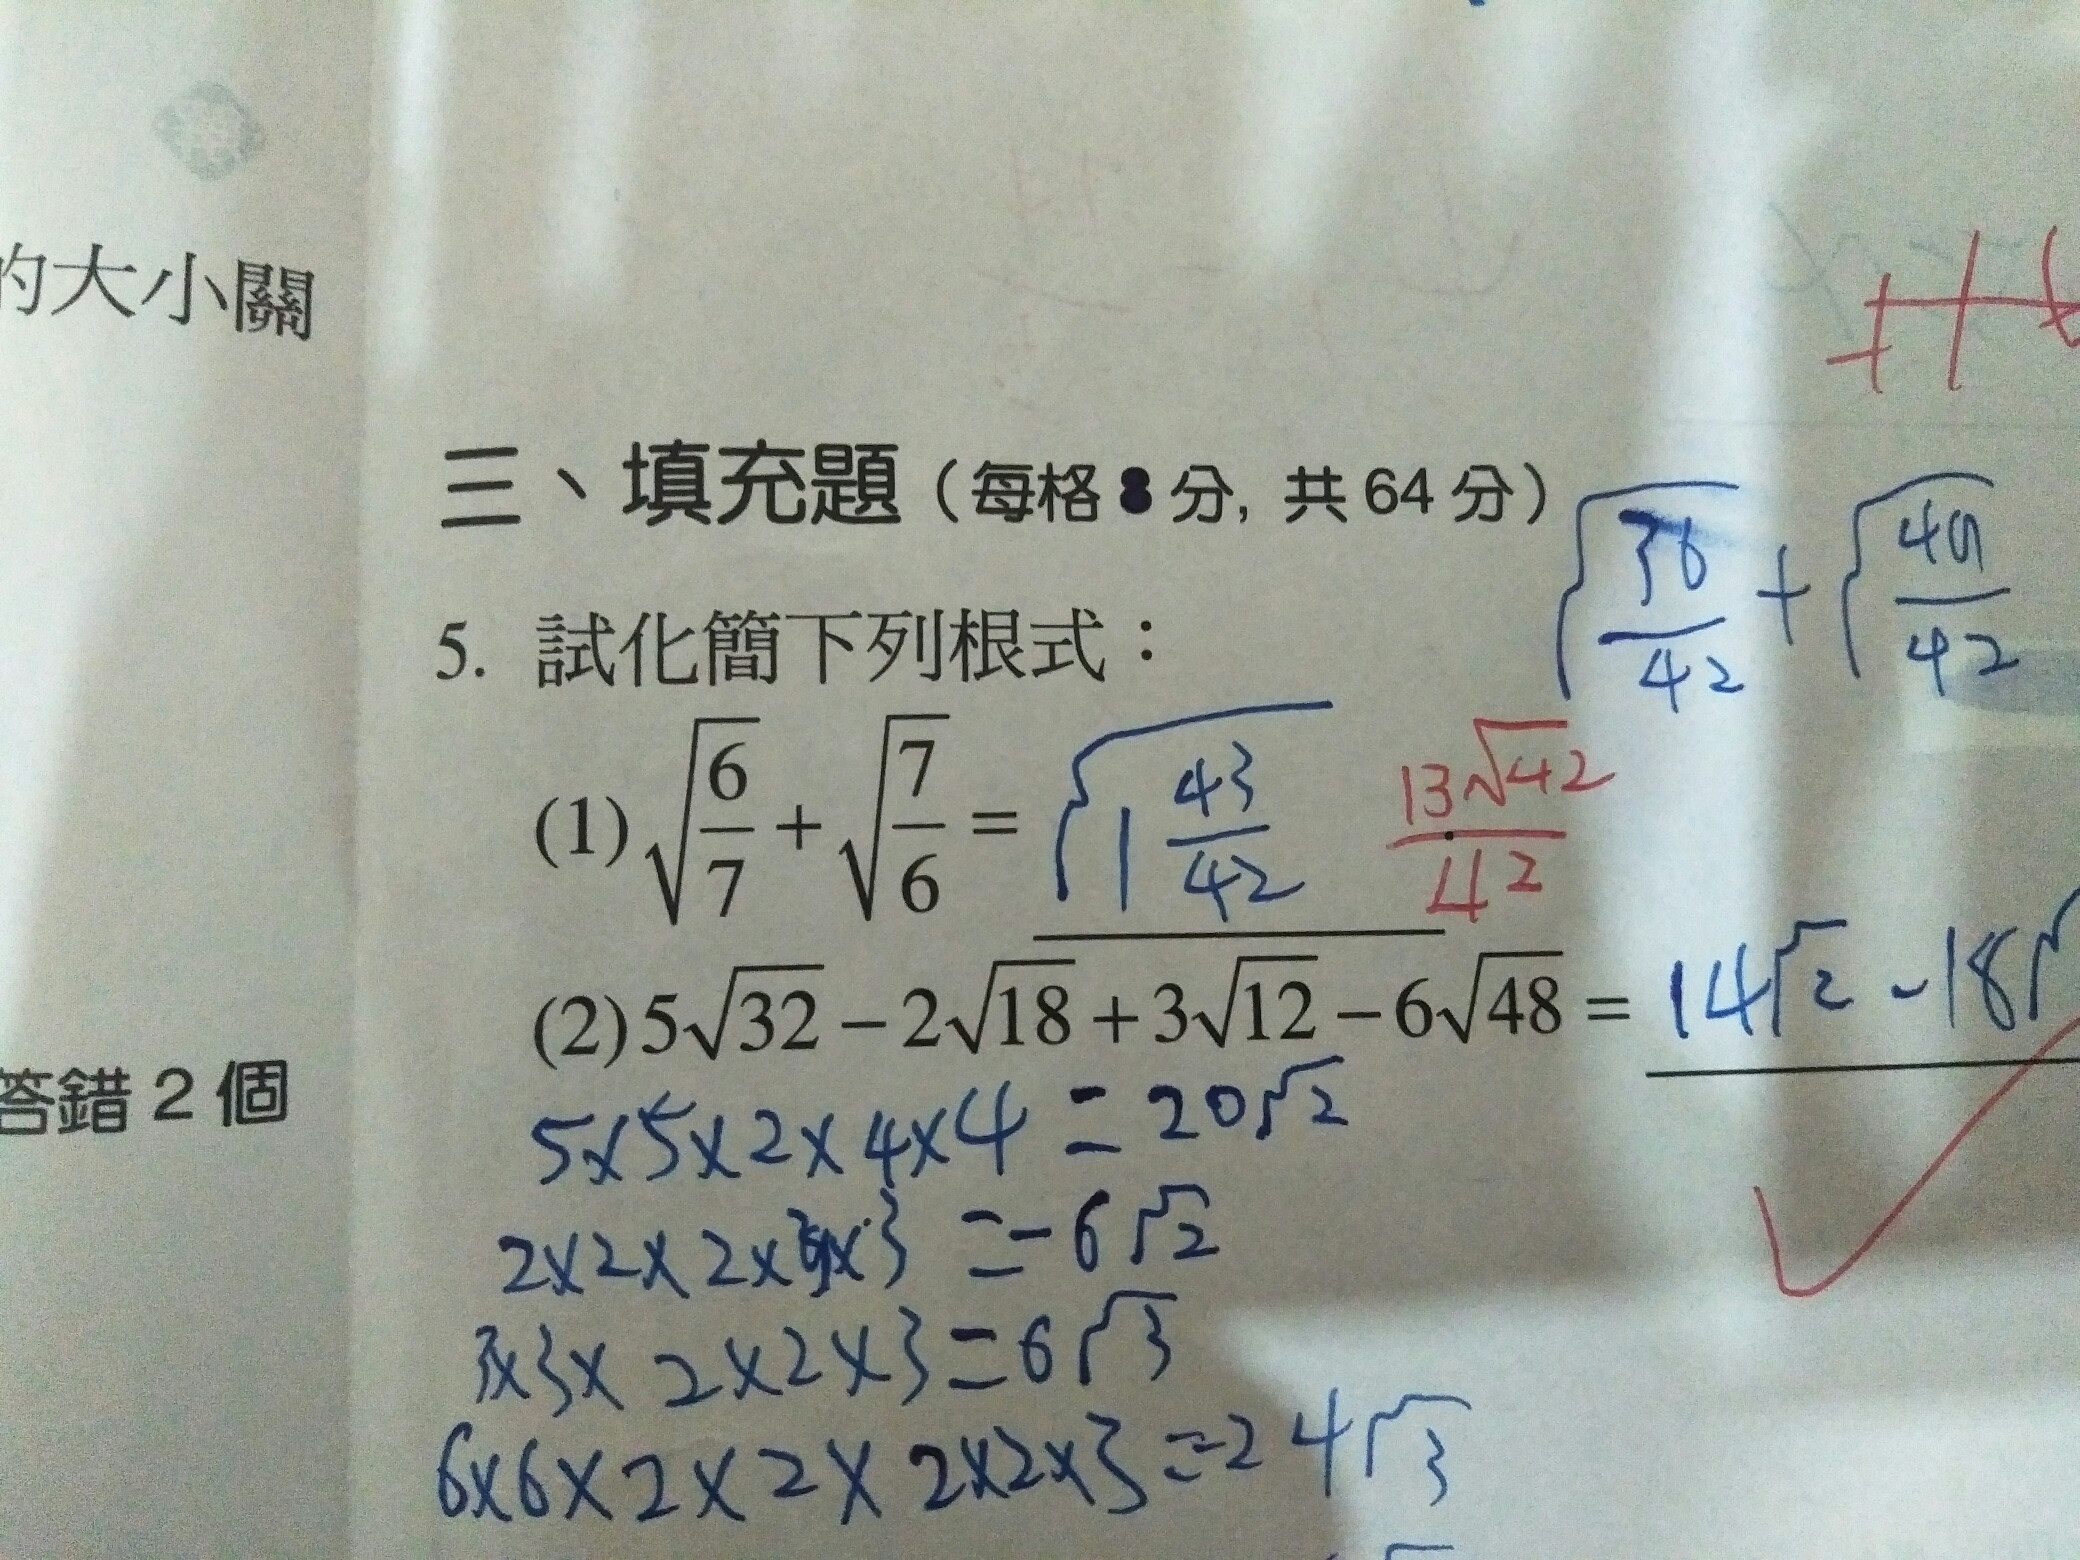 的大小關
答錯2個
三、填充題（每格8分, 共64分）
√(36/42) + √(49/42)
5. 試化簡下列根式：
(1) √(6/7) + √(7/6) = √(1 43/42) 13√42/42
(2) 5√32 − 2√18 + 3√12 − 6√48 = 14√2 - 18√
5×5×2×4×4 = 20√2
2×2×2×3×3 = -6√2
3×3×2×2×3 = 6√3
6×6×2×2×2×2×3 = -24√3